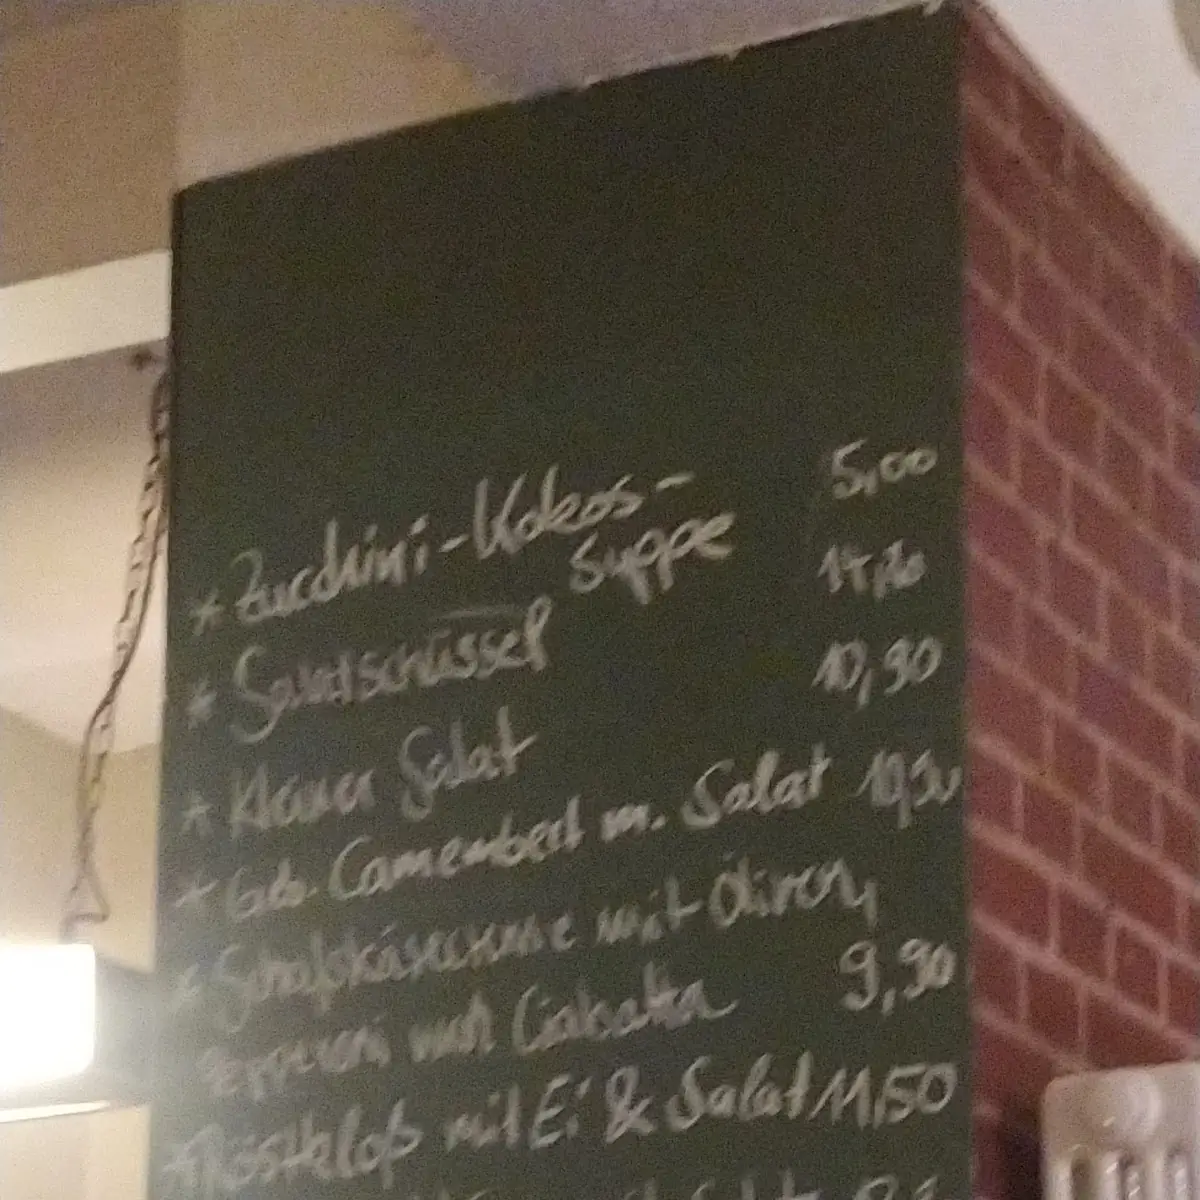 * Zucchini-Kokos-
Suppe 5,00
* Salatschüssel
* Kleiner Salat 10,90
* Geb. Camembert m. Salat
* Schafskäsecreme mit Oliven,
Pepperoni und Ciabatta 9,90
* Röstkloß mit Ei & Salat 11,50